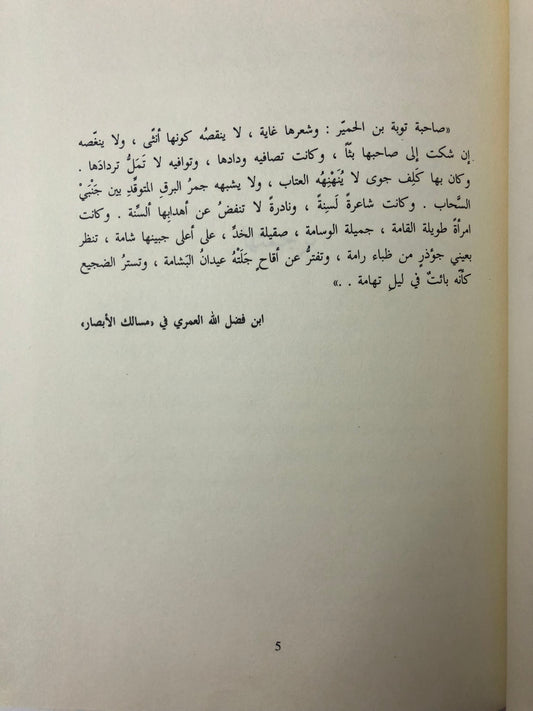 «صاحبة توبة بن الحميّر : وشعرها غاية ، لا ينقصُه كونها أنثى ، ولا ينغّصه
إن شكت إلى صاحبها بثّاً ، وكانت تصافيه ودادها ، وتوافيه لا تَمَلُّ تردادَها .
وكان بها كَلِف جوى لا يُنَهْنِهُه العتاب ، ولا يشبهه جمرُ البرقِ المتوقِّدِ بين جَنْبَيْ
السَّحاب . وكانت شاعرةً لَسِنةً ، ونادرةً لا تنفضُ عن أهدابِها ألسنِّة . وكانت
امرأةً طويلة القامة ، جميلة الوسامة ، صقيلة الخدِّ ، على أعلى جبينها شامة ، تنظر
بعيني جؤذرٍ من ظباء رامة ، وتفترُّ عن أقاحٍ جَلَتْهُ عيدانُ البَشامة ، وتسترُ الضجيع
كأنّه بائتٌ في ليلِ تهامة . .»
ابن فضل الله العمري في «مسالك الأبصار»
5